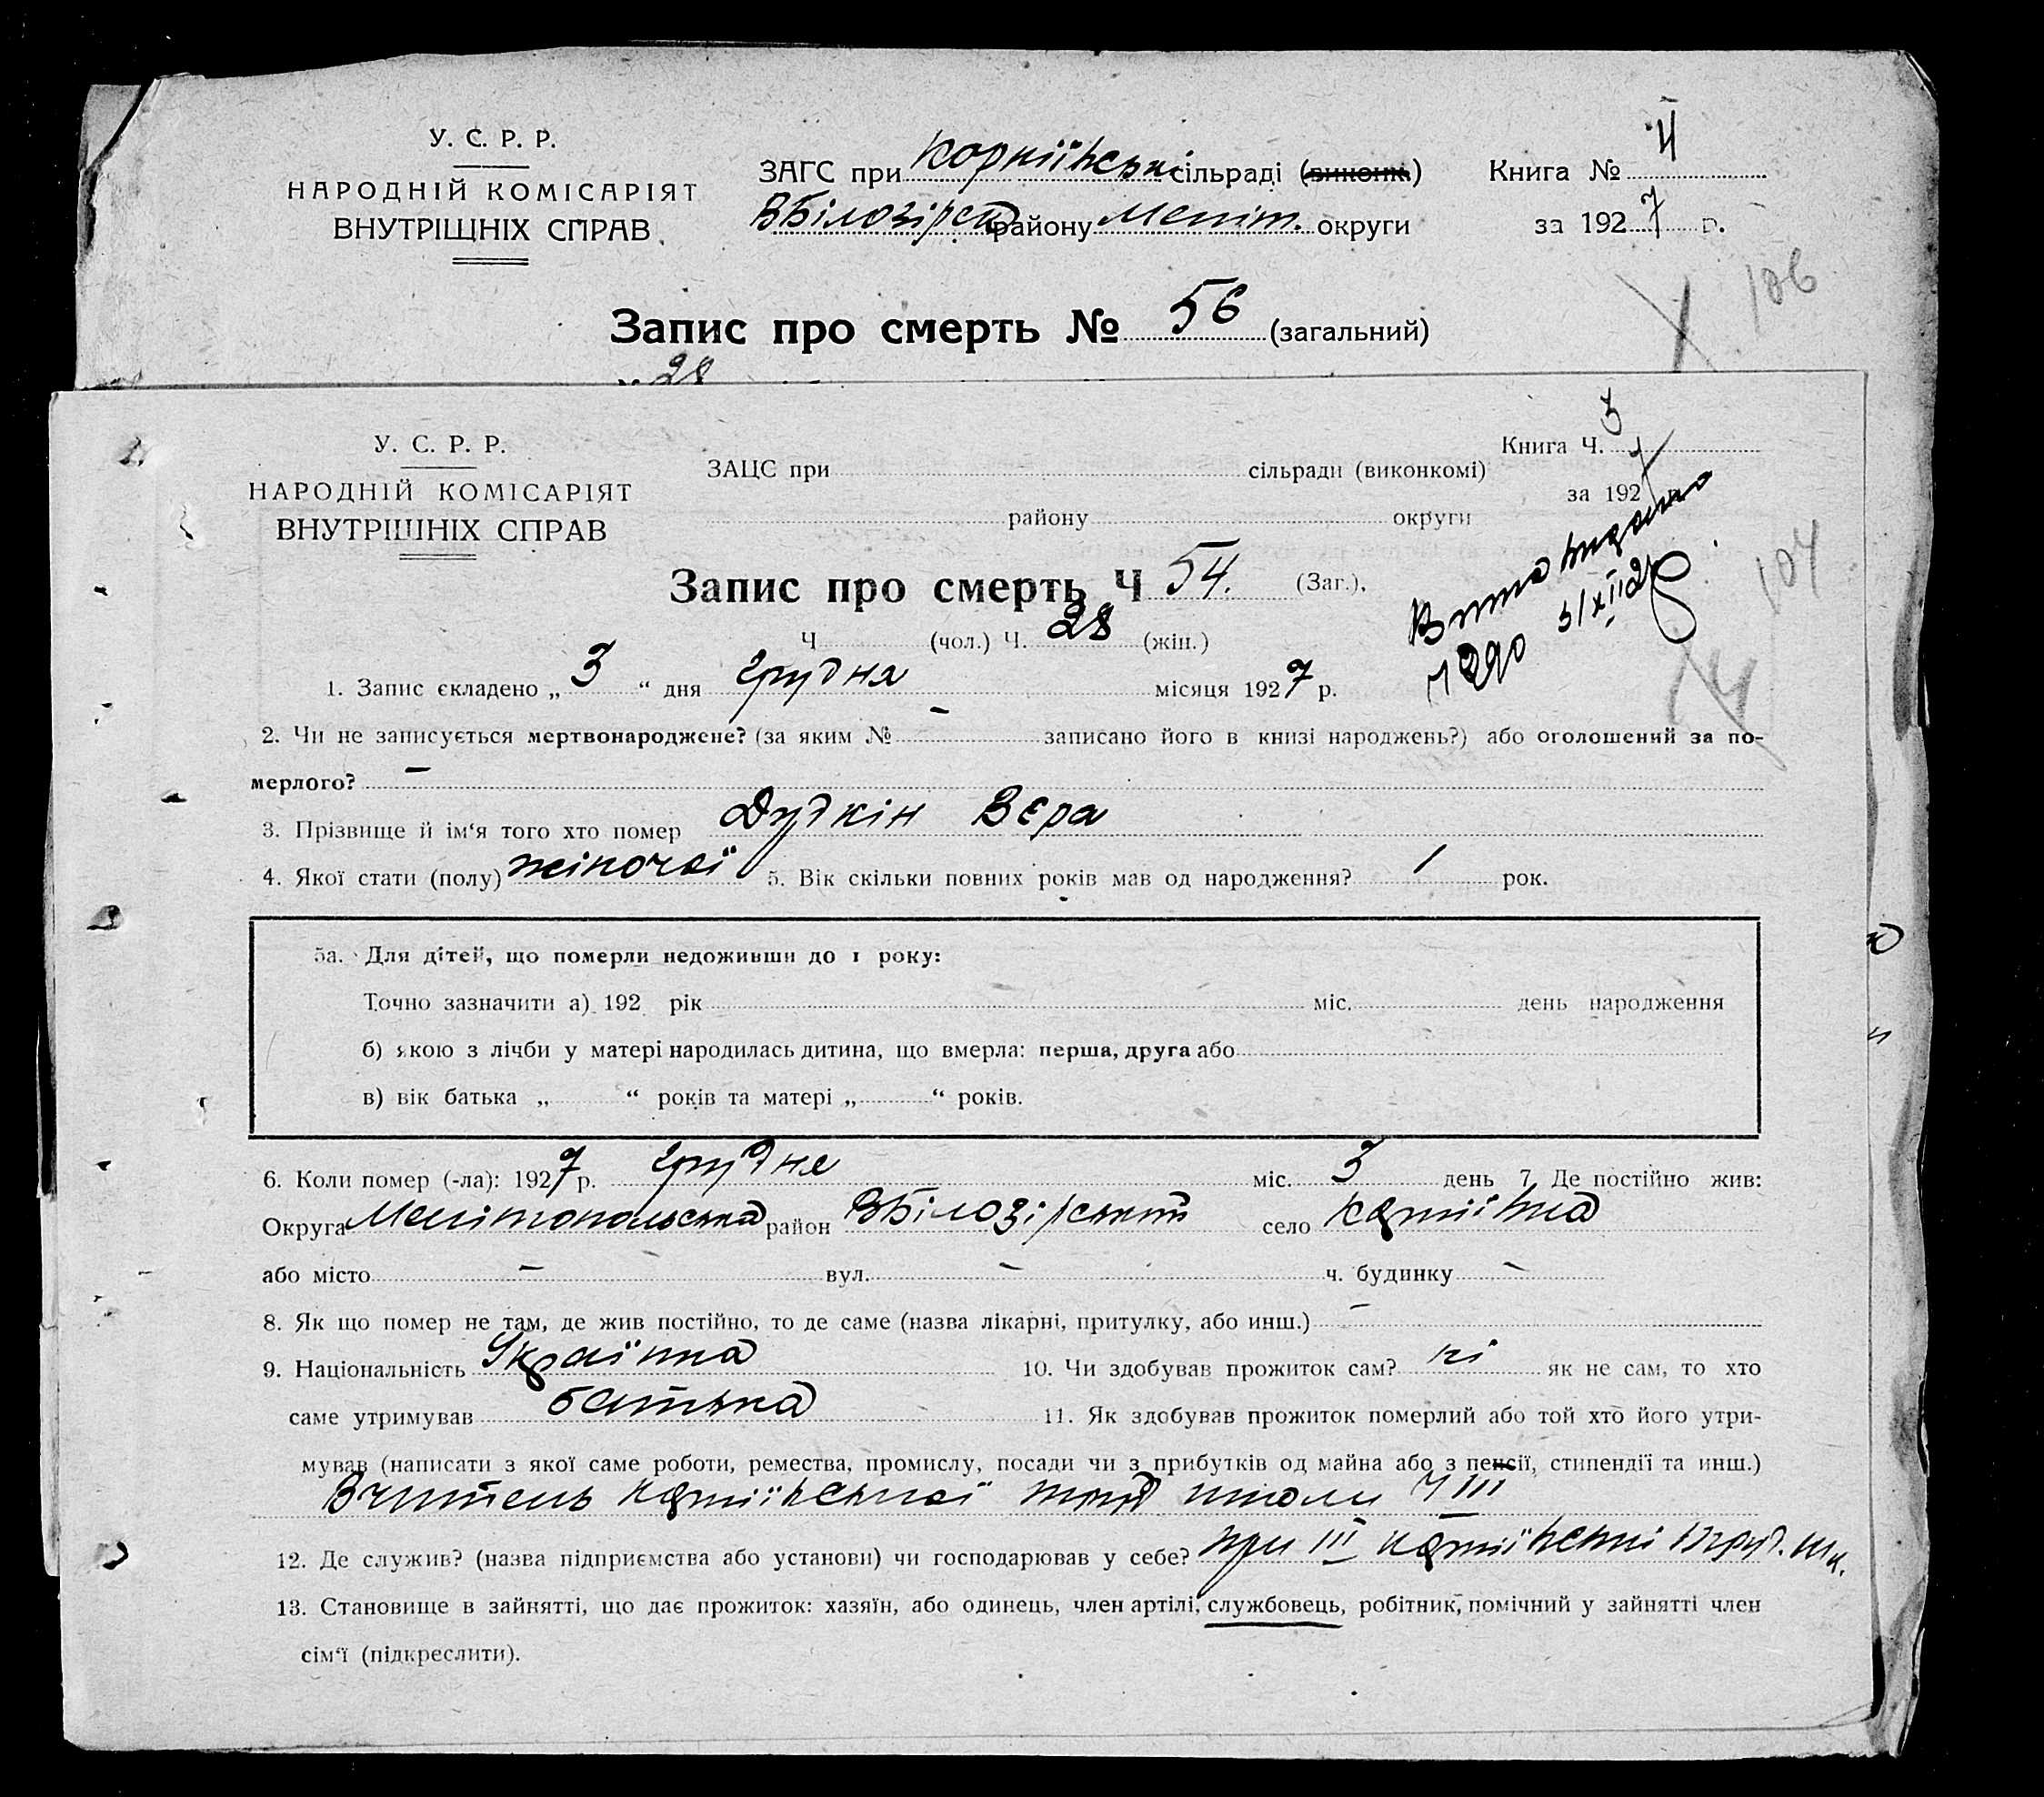 У. С. Р. Р.
НАРОДНІЙ КОМІСАРІЯТ
ВНУТРІШНІХ СПРАВ
ЗАГС при Корніївські сільраді (виконк.)
ВБілозірськ району Меліт. округи
Книга №
за 1927 р.
106
Запис про смерть № 56 (загальний)
28
У. С. Р. Р.
НАРОДНІЙ КОМІСАРІЯТ
ВНУТРІШНІХ СПРАВ
ЗАЦС при сільради (виконкомі)
району округи
Книга Ч. 3
за 1927
104
Запис про смерть Ч 54. (Заг.),
Ч (чол.) Ч. 28 (жін.)
31/XII 27
1. Запис єкладено „ 3 “ дня грудня місяця 1927 р.
2. Чи не записується мертвонароджене? (за яким № – записано його в книзі народжень?) або оголошений за по-
мерлого? –
3. Прізвище й ім‘я того хто помер Дудкін Вєра
4. Якої стати (полу) жіночої 5. Вік скільки повних років мав од народження? 1 рок.
5а. Для дітей, що померли недоживши до 1 року:
Точно зазначити а) 192 рік міс. день народження
б) якою з лічби у матері народилась дитина, що вмерла: перша, друга або
в) вік батька „ “ років та матері „ “ років.
6. Коли помер (-ла): 1927 р. грудня міс. 3 день 7. Де постійно жив:
Округа Мелітопольська район ВБілозірський село Корніївка
або місто – вул. – ч. будинку –
8. Як що помер не там, де жив постійно, то де саме (назва лікарні, притулку, або инш.) –
9. Національність Українка 10. Чи здобував прожиток сам? ні як не сам, то хто
саме утримував батька 11. Як здобував прожиток померлий або той хто його утри-
мував (написати з якої саме роботи, ремества, промислу, посади чи з прибутків од майна або з пенсії, стипендії та инш.)
Вчитель Корніївської труд школи Ч III
12. Де служив? (назва підприємства або установи) чи господарював у себе? при III Корніївській труд. шк.
13. Становище в зайнятті, що дає прожиток: хазяїн, або одинець, член артілі, службовець, робітник, помічний у зайнятті член
сім‘ї (підкреслити).